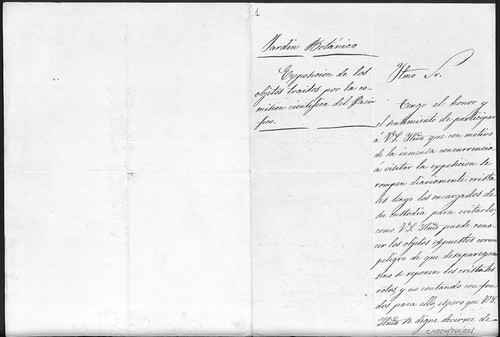 1
Jardin Botánico
Exposicion de los
objetos traidos por la co-
mision científica del Pacífi-
fico.
Ilmo Sr.
Tengo el honor y
el sentimiento de participar
á V.S. Ilmã que con motivo
de la inmensa concurrencia
á visitar la exposicion se
rompen diariamente crista-
les tengo los encargados de
su custodia para evitarlo,
como V.S. Ilmã puede cono-
cer los objetos espuestos corren
peligro de que desaparezcan
sino se reponen los cristales
rotos, y no contando con fon-
dos para ello, espero que V.S.
Ilmã se digne decirme de